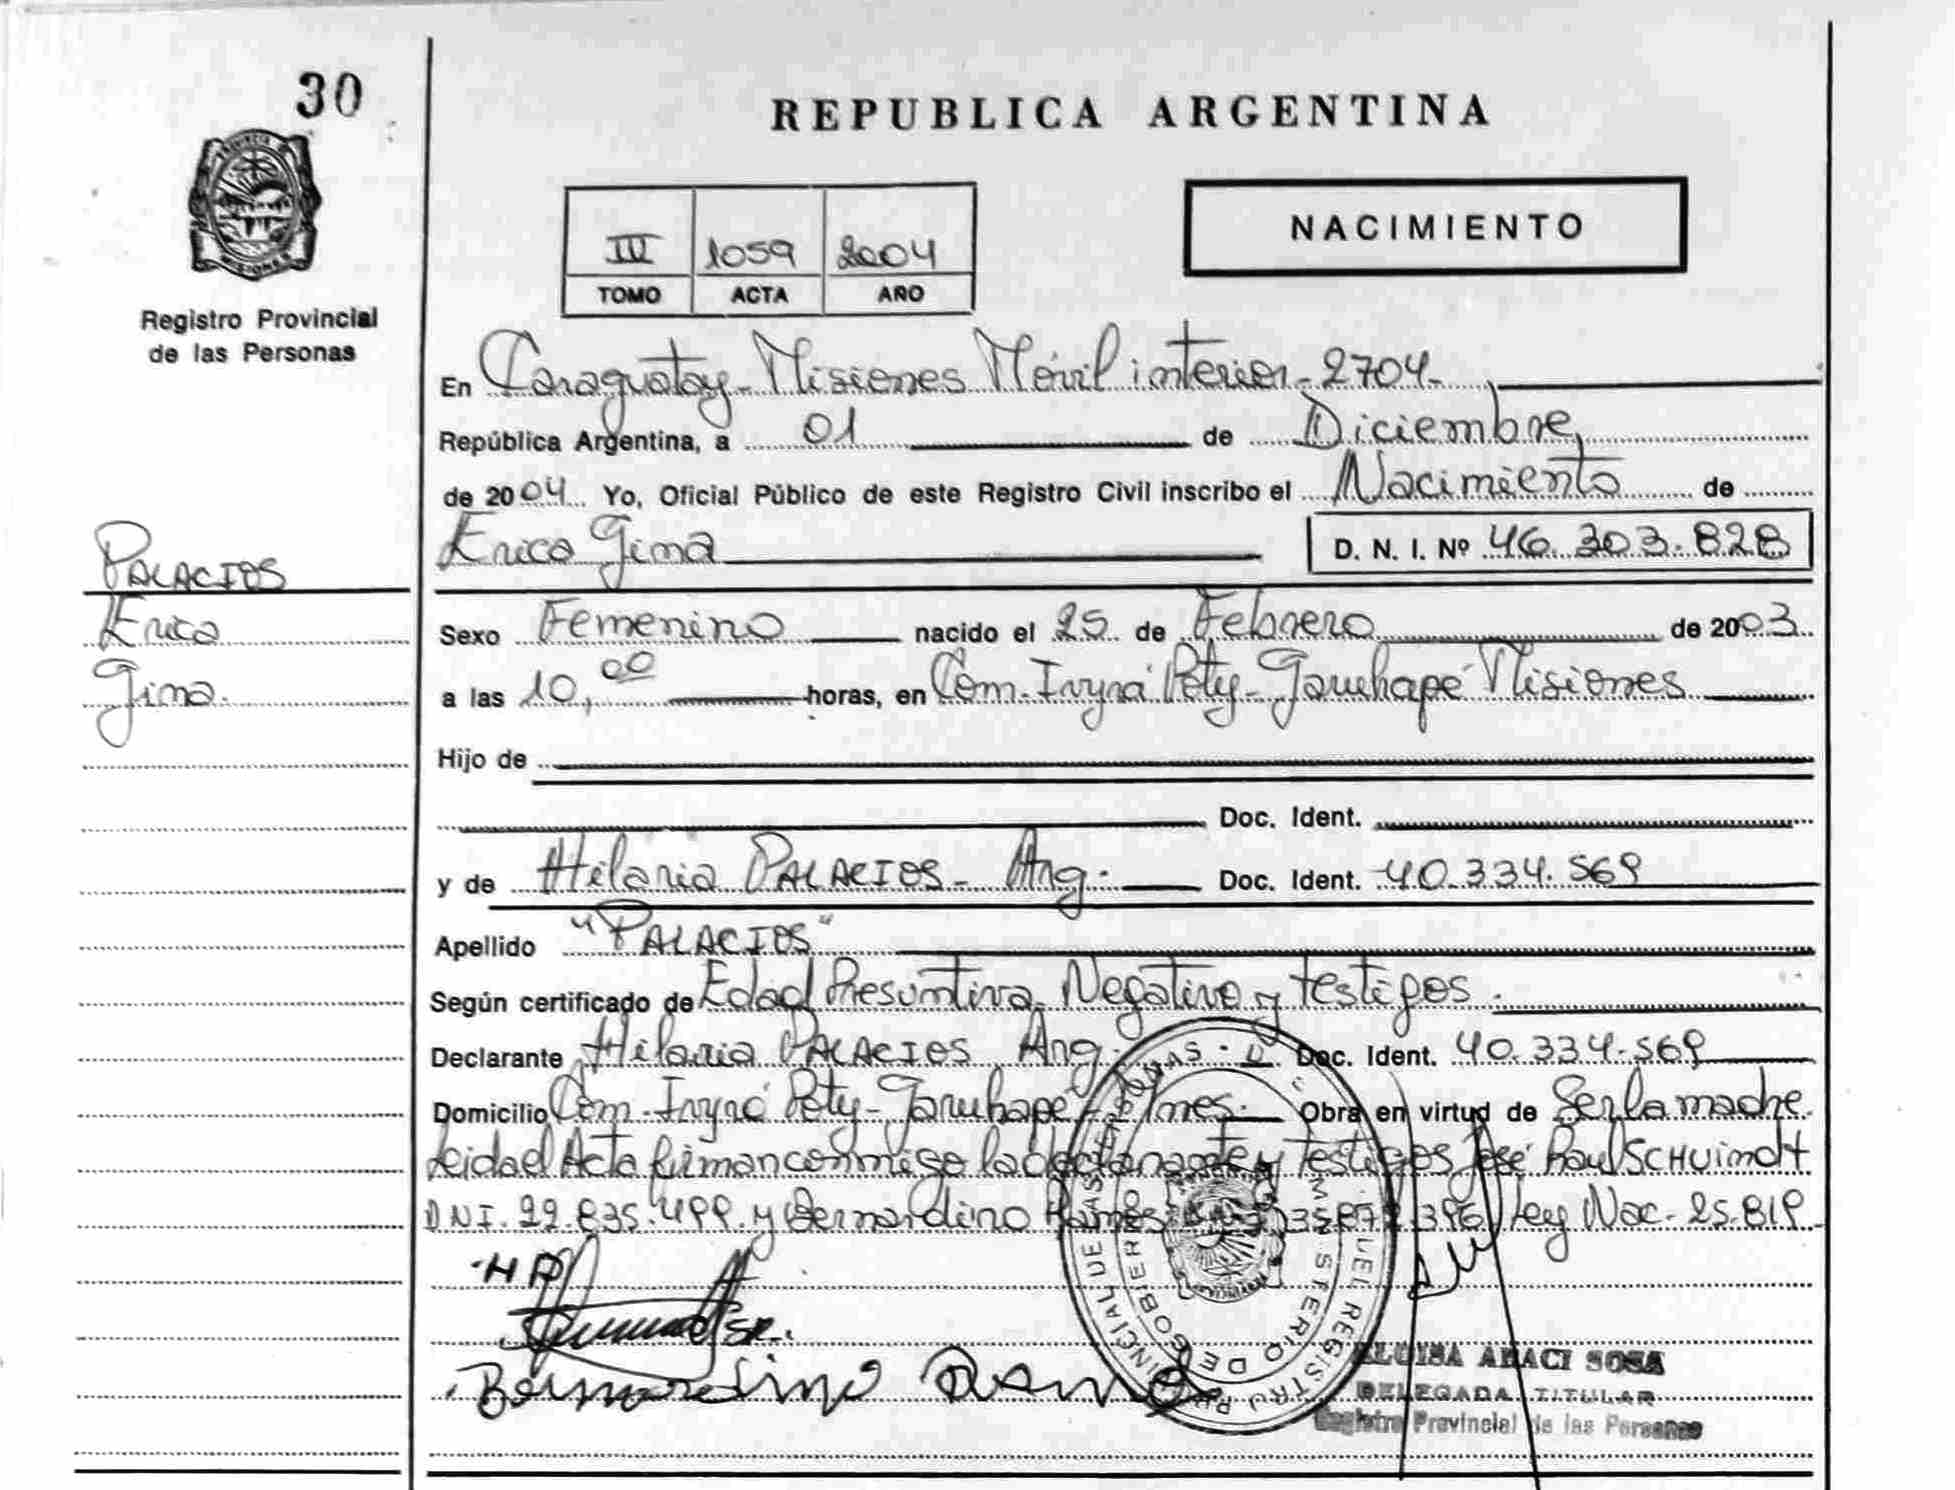 30
REPUBLICA ARGENTINA
NACIMIENTO
III 1059 2004
TOMO ACTA AÑO
PROVINCIA DE MISIONES
Registro Provincial
de las Personas
En Caraguatay - Misiones Móvil interior - 2704 -
República Argentina, a 01 de Diciembre,
de 2004 Yo, Oficial Público de este Registro Civil inscribo el Nacimiento de
Erica Gima D. N. I. Nº 46.303.828
PALACIOS
Erica
Gima.
Sexo Femenino nacido el 25 de Febrero de 2003
a las 10,00 horas, en Com. Ivyrá Poty - Garuhapé Misiones
Hijo de
Doc. Ident.
y de Hilaria PALACIOS - Arg. Doc. Ident. 40.334.569
Apellido "PALACIOS"
Según certificado de Edad Presuntiva, Negativo y testigos.
Declarante Hilaria PALACIOS Arg. Doc. Ident. 40.334.569
Domicilio Com. Ivyrá Poty - Garuhapé - Mnes. Obra en virtud de Ser la madre
Leida el Acta firman conmigo la declarante y testigos José Raul SCHUimdt
DNI. 22.835.499 y Bernardino Ley Nac. 25.819
HP
Bernardino Ramo
ELUISA ARACI SOSA
DELEGADA TITULAR
Registro Provincial de las Personas